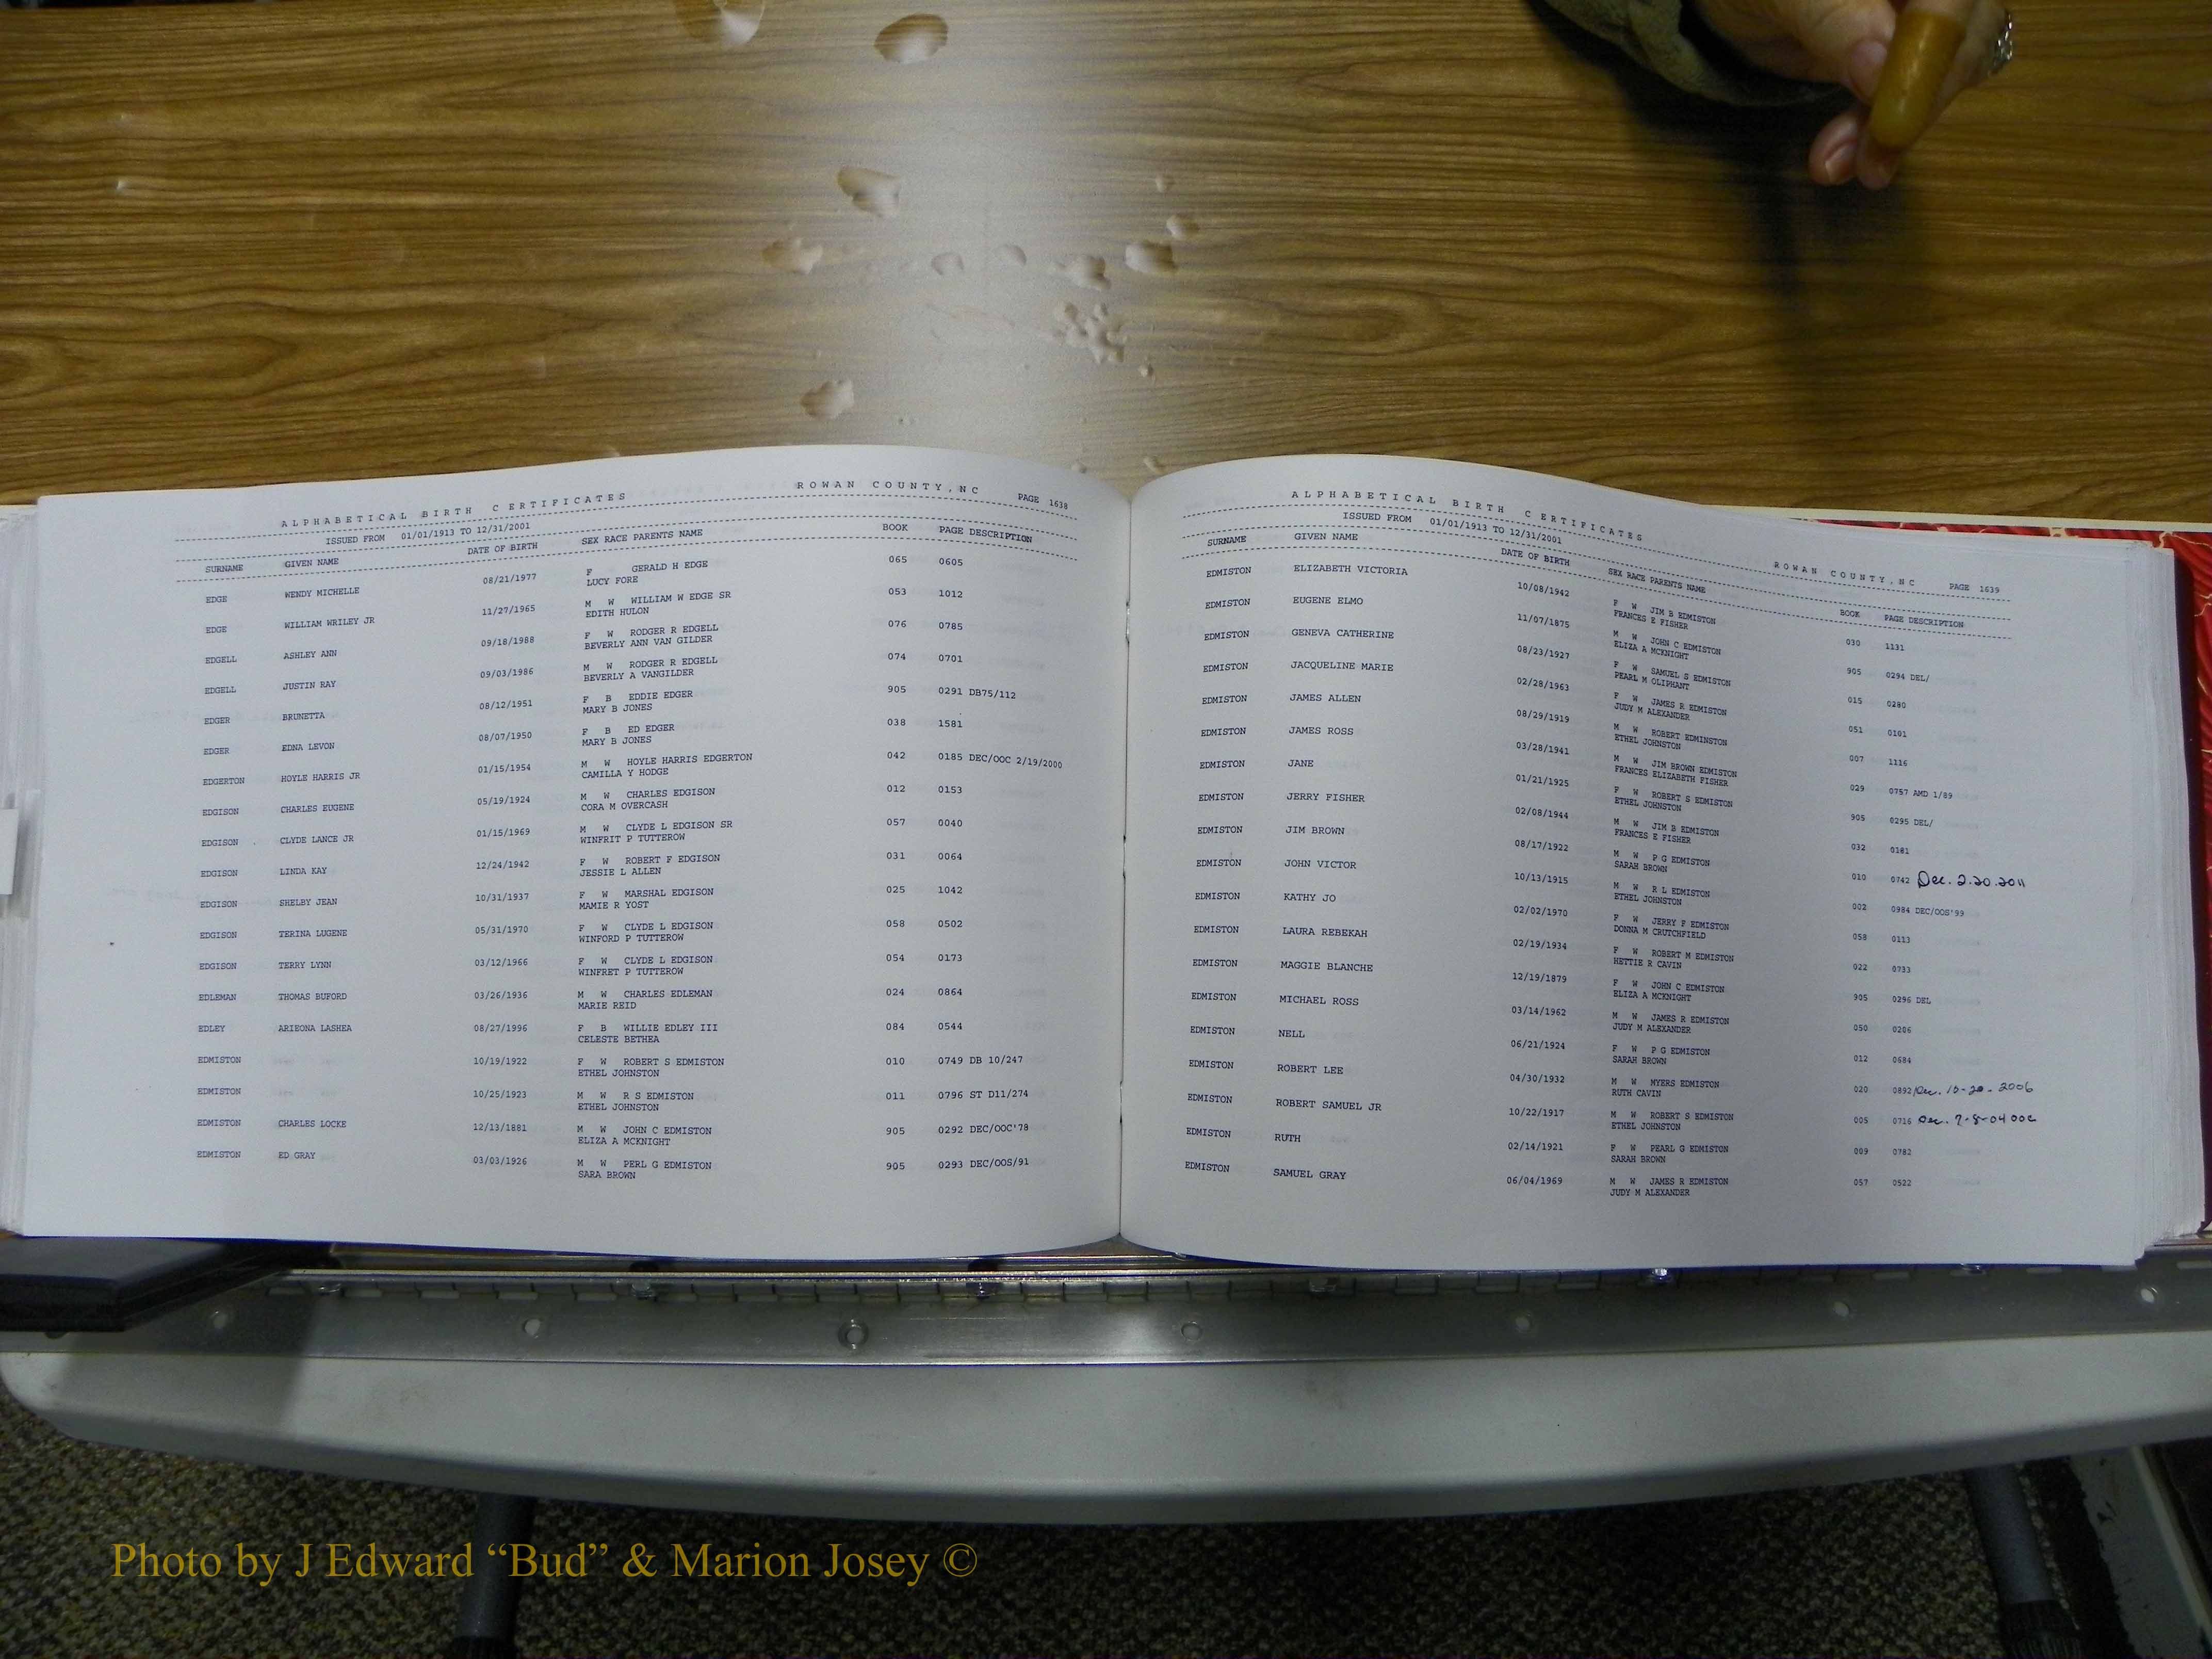 ALPHABETICAL BIRTH CERTIFICATES ROWAN COUNTY, NC PAGE 1638
ISSUED FROM 01/01/1913 TO 12/31/2001
SURNAME GIVEN NAME DATE OF BIRTH SEX RACE PARENTS NAME BOOK PAGE DESCRIPTION
EDGE WENDY MICHELLE 08/21/1977 F GERALD H EDGE 065 0605
LUCY FORE
EDGE WILLIAM WRILEY JR 11/27/1965 M W WILLIAM W EDGE SR 053 1012
EDITH HULON
EDGELL ASHLEY ANN 09/18/1988 F W RODGER R EDGELL 076 0785
BEVERLY ANN VAN GILDER
EDGELL JUSTIN RAY 09/03/1986 M W RODGER R EDGELL 074 0701
BEVERLY A VANGILDER
EDGER BRUNETTA 08/12/1951 F B EDDIE EDGER 905 0291 DB75/112
MARY B JONES
EDGER EDNA LEVON 08/07/1950 F B ED EDGER 038 1581
MARY B JONES
EDGERTON HOYLE HARRIS JR 01/15/1954 M W HOYLE HARRIS EDGERTON 042 0185 DEC/OOC 2/19/2000
CAMILLA Y HODGE
EDGISON CHARLES EUGENE 05/19/1924 M W CHARLES EDGISON 012 0153
CORA M OVERCASH
EDGISON CLYDE LANCE JR 01/15/1969 M W CLYDE L EDGISON SR 057 0040
WINFRIT P TUTTEROW
EDGISON LINDA KAY 12/24/1942 F W ROBERT F EDGISON 031 0064
JESSIE L ALLEN
EDGISON SHELBY JEAN 10/31/1937 F W MARSHAL EDGISON 025 1042
MAMIE R YOST
EDGISON TERINA LUGENE 05/31/1970 F W CLYDE L EDGISON 058 0502
WINFORD P TUTTEROW
EDGISON TERRY LYNN 03/12/1966 F W CLYDE L EDGISON 054 0173
WINFRET P TUTTEROW
EDLEMAN THOMAS BUFORD 03/26/1936 M W CHARLES EDLEMAN 024 0864
MARIE REID
EDLEY ARIEONA LASHEA 08/27/1996 F B WILLIE EDLEY III 084 0544
CELESTE BETHEA
EDMISTON 10/19/1922 F W ROBERT S EDMISTON 010 0749 DB 10/247
ETHEL JOHNSTON
EDMISTON 10/25/1923 M W R S EDMISTON 011 0796 ST D11/274
ETHEL JOHNSTON
EDMISTON CHARLES LOCKE 12/13/1881 M W JOHN C EDMISTON 905 0292 DEC/OOC'78
ELIZA A MCKNIGHT
EDMISTON ED GRAY 03/03/1926 M W PERL G EDMISTON 905 0293 DEC/OOS/91
SARA BROWN
ALPHABETICAL BIRTH CERTIFICATES ROWAN COUNTY, NC PAGE 1639
ISSUED FROM 01/01/1913 TO 12/31/2001
SURNAME GIVEN NAME DATE OF BIRTH SEX RACE PARENTS NAME BOOK PAGE DESCRIPTION
EDMISTON ELIZABETH VICTORIA 10/08/1942 F W JIM B EDMISTON 030 1131
FRANCES E FISHER
EDMISTON EUGENE ELMO 11/07/1875 M W JOHN C EDMISTON 905 0294 DEL/
ELIZA A MCKNIGHT
EDMISTON GENEVA CATHERINE 08/23/1927 F W SAMUEL S EDMISTON 015 0280
PEARL M OLIPHANT
EDMISTON JACQUELINE MARIE 02/28/1963 F W JAMES R EDMISTON 051 0101
JUDY M ALEXANDER
EDMISTON JAMES ALLEN 08/29/1919 M W ROBERT EDMINSTON 007 1116
ETHEL JOHNSTON
EDMISTON JAMES ROSS 03/28/1941 M W JIM BROWN EDMISTON 029 0757 AMD 1/89
FRANCES ELIZABETH FISHER
EDMISTON JANE 01/21/1925 F W ROBERT S EDMISTON 905 0295 DEL/
ETHEL JOHNSTON
EDMISTON JERRY FISHER 02/08/1944 M W JIM B EDMISTON 032 0181
FRANCES E FISHER
EDMISTON JIM BROWN 08/17/1922 M W P G EDMISTON 010 0742 Dec. 2.20.2011
SARAH BROWN
EDMISTON JOHN VICTOR 10/13/1915 M W R L EDMISTON 002 0984 DEC/OOS'99
ETHEL JOHNSTON
EDMISTON KATHY JO 02/02/1970 F W JERRY F EDMISTON 058 0113
DONNA M CRUTCHFIELD
EDMISTON LAURA REBEKAH 02/19/1934 F W ROBERT M EDMISTON 022 0733
HETTIE R CAVIN
EDMISTON MAGGIE BLANCHE 12/19/1879 F W JOHN C EDMISTON 905 0296 DEL
ELIZA A MCKNIGHT
EDMISTON MICHAEL ROSS 03/14/1962 M W JAMES R EDMISTON 050 0206
JUDY M ALEXANDER
EDMISTON NELL 06/21/1924 F W P G EDMISTON 012 0684
SARAH BROWN
EDMISTON ROBERT LEE 04/30/1932 M W MYERS EDMISTON 020 0892/Dec. 10-20-2006
RUTH CAVIN
EDMISTON ROBERT SAMUEL JR 10/22/1917 M W ROBERT S EDMISTON 005 0716 Dec. 7-8-04 OOC
ETHEL JOHNSTON
EDMISTON RUTH 02/14/1921 F W PEARL G EDMISTON 009 0782
SARAH BROWN
EDMISTON SAMUEL GRAY 06/04/1969 M W JAMES R EDMISTON 057 0522
JUDY M ALEXANDER
Photo by J Edward “Bud” & Marion Josey ©